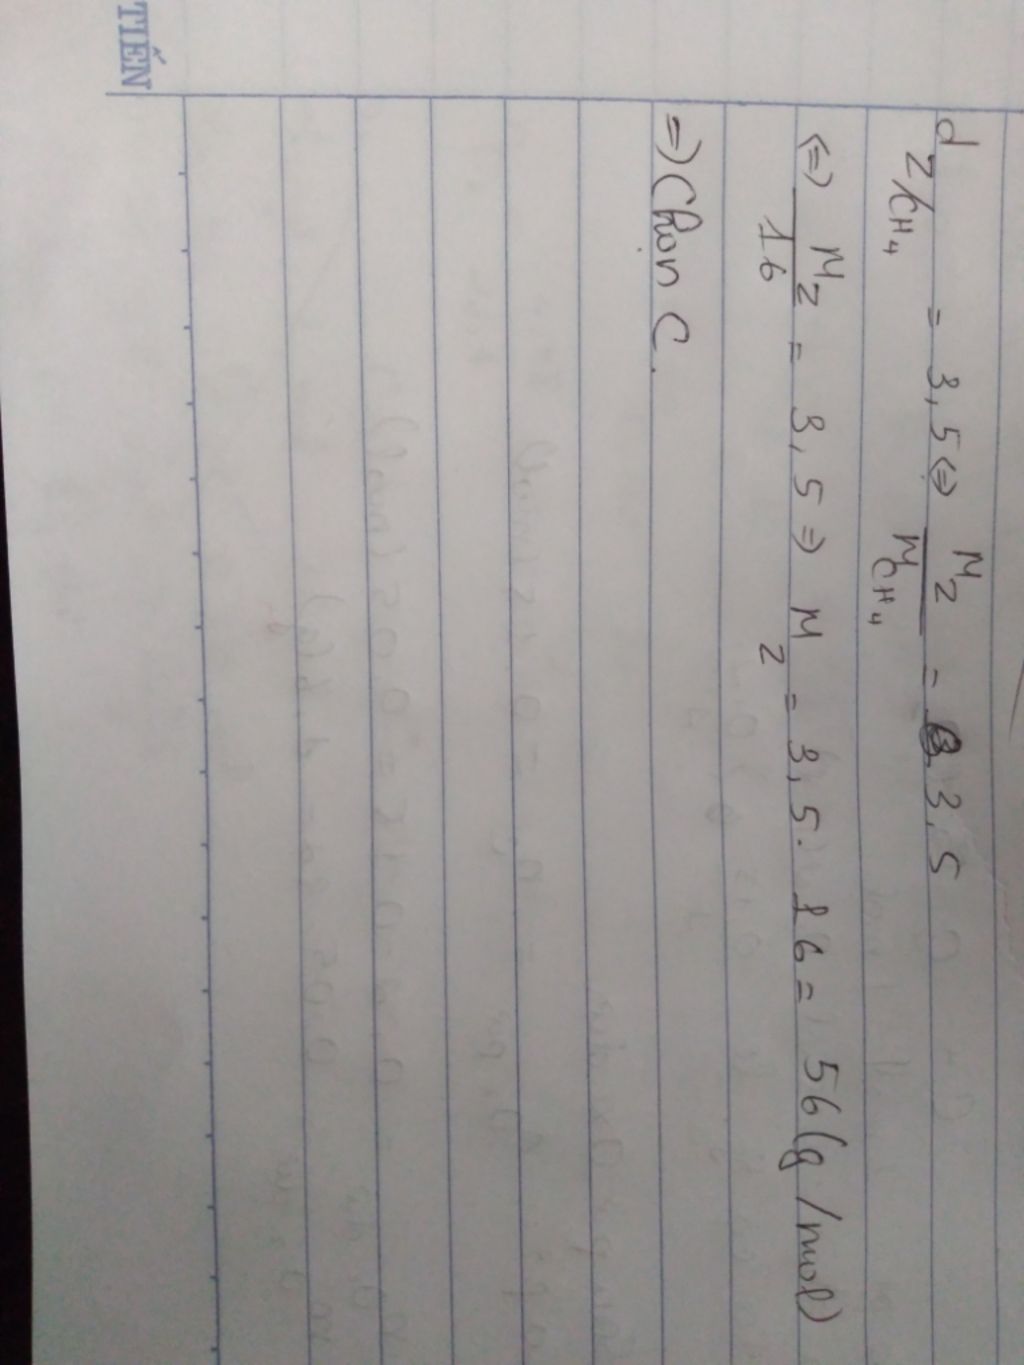 d Z/CH4 = 3,5 <=> MZ / MCH4 = 3,5
<=> MZ / 16 = 3,5 => MZ = 3,5 . 16 = 56 (g/mol)
=> Chọn C.
TIẾN